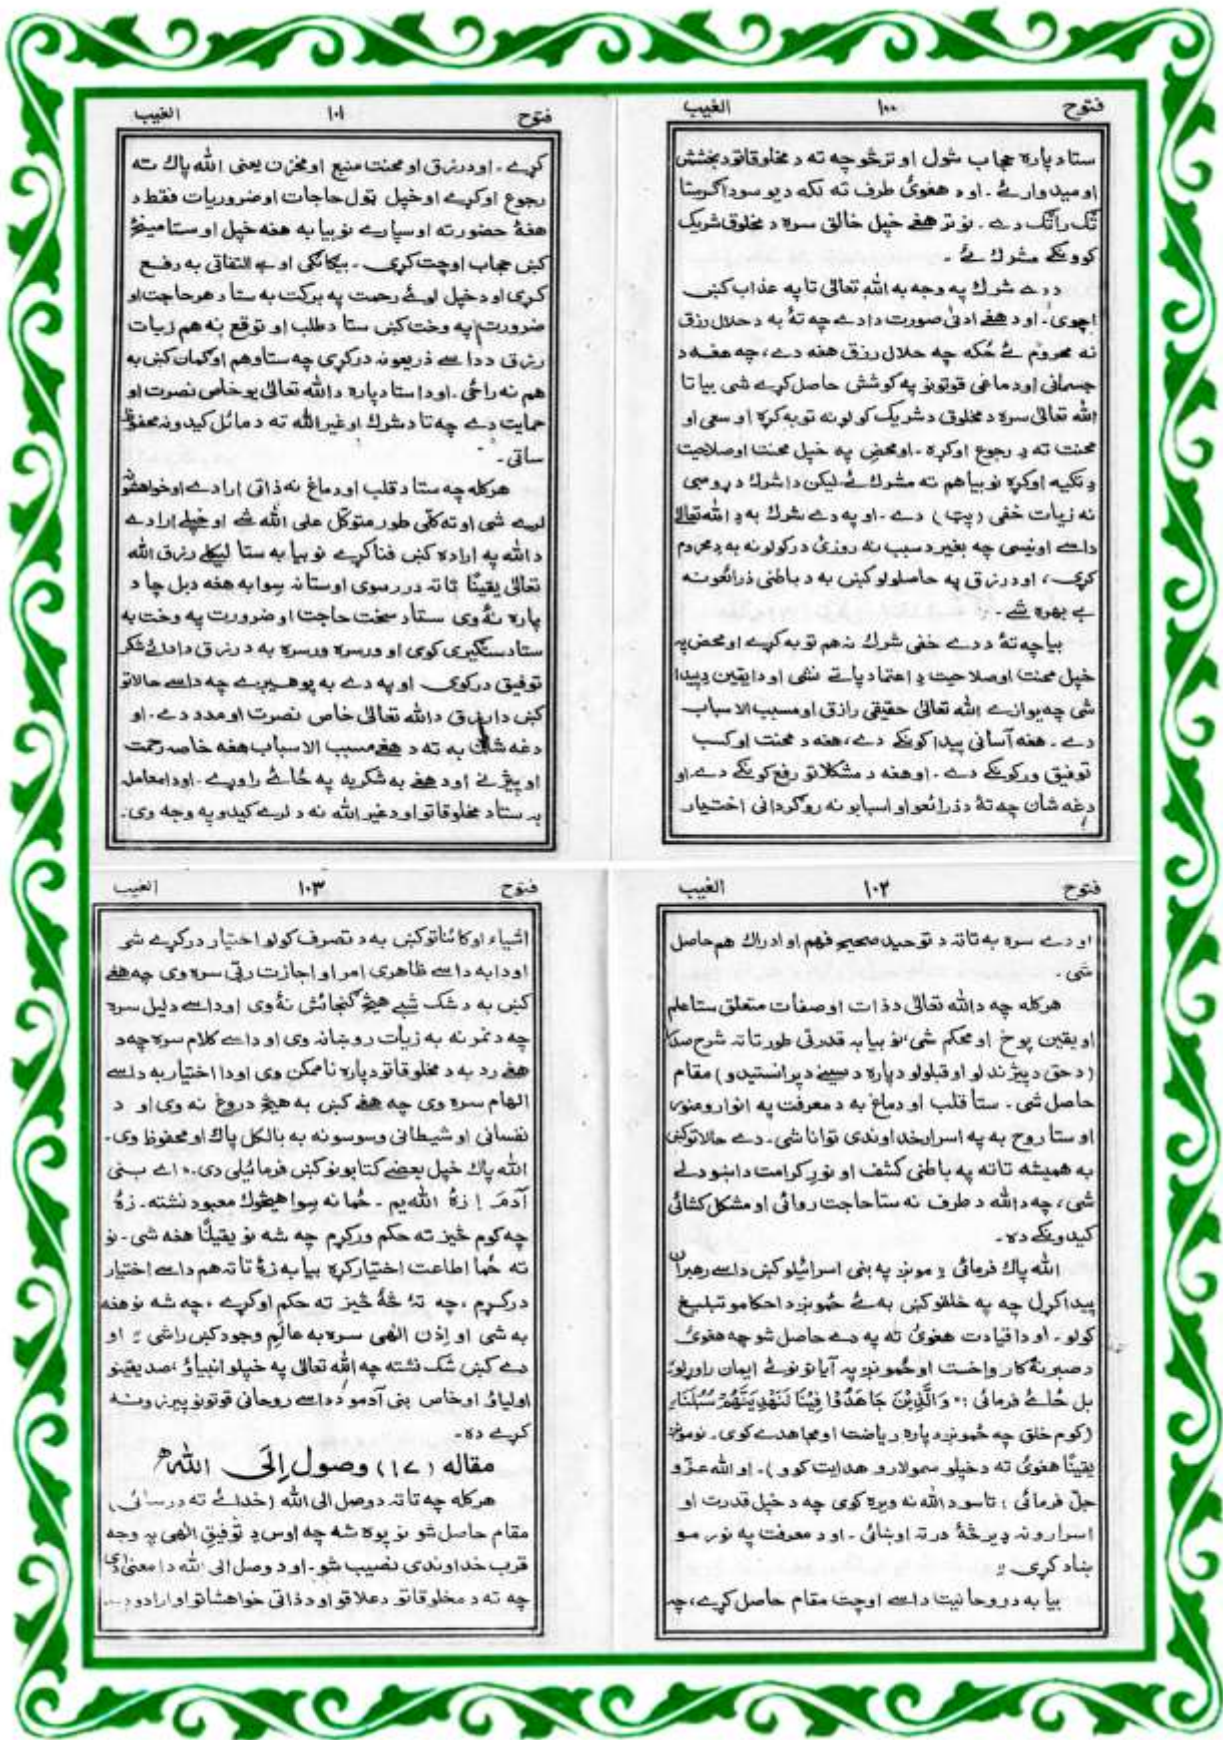 فتوح ١٠٠ الغيب
ستا دپاره حجاب شول او ترڅو چه ته د مخلوقاتو د بخشش
اوميدوار ئے . او د هغوئ طرف ته تکه ديو سوداګر ستا
تګ راتګ دے . نو تر هغے خپل خالق سره د مخلوق شريک
کوونکے مشرك ئے .
د دے شرك په وجه به الله تعالیٰ تا په عذاب کښ
اچوی . او د هغے ادنیٰ صورت دا دے چه تۀ به د حلال رزق
نه محروم ئے ځکه چه حلال رزق هغه دے ، چه هغه د
جسمانی او دماغی قوتونو په کوشش حاصل کړے شی بيا تا
الله تعالیٰ سره د مخلوق د شريک کولو نه توبه کړه او سعی او
محنت ته دِ رجوع اوکړه . او محض په خپل محنت او صلاحيت
دِ تکيه اوکړه نو بيا هم ته مشرك ئے ليکن دا شرك د ړومبی
نه زيات خفی (پټ) دے . او په دے شرك به دِ الله تعالیٰ
داسے اونيسی چه بغير د سبب نه روزی درکولو نه به دِ محروم
کړی ، او د رزق په حاصلولو کښ به د باطنی ذرائعو نه
بے بهره شے .
بيا چه تۀ د دے خفی شرك نه هم توبه کړے او محض په
خپل محنت او صلاحيت دِ اعتماد پاتے نشی او دا يقين دِ پيدا
شی چه يوازے الله تعالیٰ حقيقی رازق او مسبب الاسباب
دے . هغه آسانی پيدا کونکے دے ، هغه د محنت او کسب
توفيق ورکونکے دے . او هغه د مشکلاتو رفع کونکے دے . او
دغه شان چه تۀ د ذرائعو او اسبابو نه روګردانی اختيار
فتوح ١٠١ الغيب
کړے . او د رزق او محنت منبع او مخزن يعنی الله پاك ته
رجوع اوکړے او خپل ټول حاجات او ضروريات فقط د
هغۀ حضور ته اوسپارے نو بيا به هغه خپل او ستا مينځ
کښ حجاب اوچت کړی . بيګانګی او بے التفاتی به رفع
کړی او د خپل لوئے رحمت په برکت به ستا د هر حاجت او
ضرورت په وخت کښ ستا د طلب او توقع نه هم زيات
رزق د داسے ذريعو نه درکړی چه ستا وهم او ګمان کښ به
هم نه راځی . او دا ستا دپاره د الله تعالیٰ يو خاص نصرت او
حمايت دے چه تا د شرك او غير الله ته د مائل کيدو نه محفوظ
ساتی .
هر کله چه ستا د قلب او دماغ نه ذاتی ارادے او خواهش
لرے شی او ته کلّی طور متوکّل علی الله شے او خپلے ارادے
د الله په اراده کښ فنا کړے نو بيا به ستا ليکلے رزق الله
تعالیٰ يقينًا تا ته دررسوی او ستا نه سِوا به هغه د بل چا د
پاره نۀ وی ستا د سخت حاجت او ضرورت په وخت به
ستا دستګيری کوی او ورسره ورسره به د رزق د ادائے شکر
توفيق درکوی او په دے به پوهيږے چه داسے حالاتو
کښ دا رزق د الله تعالیٰ خاص نصرت او مدد دے . او
دغه شان به ته د هغے مسبب الاسباب هغه خاصه رحمت
اوپيژنے او د هغے به شکريه په ځائے راوړے . او دا معامله
به ستا د مخلوقاتو او د غير الله نه د لرے کيدو په وجه وی .
فتوح ١٠٢ الغيب
او دے سره به تا ته د توحيد صحيح فهم او ادراك هم حاصل
شی .
هر کله چه د الله تعالیٰ د ذات او صفات متعلق ستا علم
او يقين پوخ او محکم شی نو بيا به قدرتی طور تا ته شرح صدر
(د حق د پيژندلو او قبلولو دپاره د سينے د پرانستيدو) مقام
حاصل شی . ستا قلب او دماغ به د معرفت په انوارو منور
او ستا روح به په اسرار خداوندی توانا شی . دے حالاتو کښ
به هميشه تا ته په باطنی کشف او نور کرامت دا ښودلے
شی ، چه د الله د طرف نه ستا حاجت روائی او مشکل کشائی
کيدونکے ده .
الله پاك فرمائی : مونږ په بنی اسرائيلو کښ داسے رهبران
پيدا کړل چه په خلقو کښ به ئے ځمونږ د احکامو تبليغ
کولو . او دا قيادت هغوئ ته په دے حاصل شو چه هغوئ
د صبر نه کار واخست او ځمونږ په آياتونو ئے ايمان راوړلو .
بل ځائے فرمائی : وَالَّذِيْنَ جَاهَدُوْا فِيْنَا لَنَهْدِيَنَّهُمْ سُبُلَنَا
(کوم خلق چه ځمونږ دپاره رياضت او مجاهدے کوی . نو مونږ
يقينًا هغوئ ته د خپلو سمو لارو هدايت کوو) . او الله عزّ و
جلّ فرمائی : تاسو د الله نه ويره کوی چه د خپل قدرت او
اسرارو نه ډير څۀ درته اوښائی . او د معرفت په نور مو
ښاد کړی .
بيا به د روحانيت داسے اوچت مقام حاصل کړے ، چه
فتوح ١٠٣ الغيب
اشياء او کائناتو کښ به د تصرف کولو اختيار درکړے شی
او دا به داسے ظاهری امر او اجازت رتی سره وی چه هغے
کښ به د شک شبے هيڅ ګنجائش نۀ وی او داسے دليل سره
چه د نمر نه به زيات روښانه وی او داسے کلام سره چه د
هغے رد به د مخلوقاتو دپاره ناممکن وی او دا اختيار به داسے
الهام سره وی چه هغے کښ به هيڅ دروغ نه وی او د
نفسانی او شيطانی وسوسو نه به بالکل پاك او محفوظ وی .
الله پاك خپل بعضے کتابونو کښ فرمائيلی دی . اے بنی
آدمَ ! زۀ الله يم . ځما نه سِوا هيڅوك معبود نشته . زۀ
چه کوم څيز ته حکم ورکړم چه شه نو يقينًا هغه شی . نو
ته ځما اطاعت اختيار کړه بيا به زۀ تا ته هم داسے اختيار
درکړم ، چه تۀ څۀ څيز ته حکم اوکړے ، چه شه نو هغه
به شی او اِذن الٰهی سره به عالَمِ وجود کښ راشی . او
دے کښ شک نشته چه الله تعالیٰ په خپلو انبياؤ ، صديقينو
اولياؤ او خاص بنی آدمو د داسے روحانی قوتونو پيرزوينه
کړے ده .
مقاله (١٧) وصول اِلَی الله
هر کله چه تا ته د وصل الی الله (خدائے ته د رسائی)
مقام حاصل شو نو پوه شه چه اوس دِ توفيقِ الٰهی په وجه
قرب خداوندی نصيب شو . او د وصل الی الله دا معنیٰ ده
چه ته د مخلوقاتو د علاقو او د ذاتی خواهشاتو او ارادو